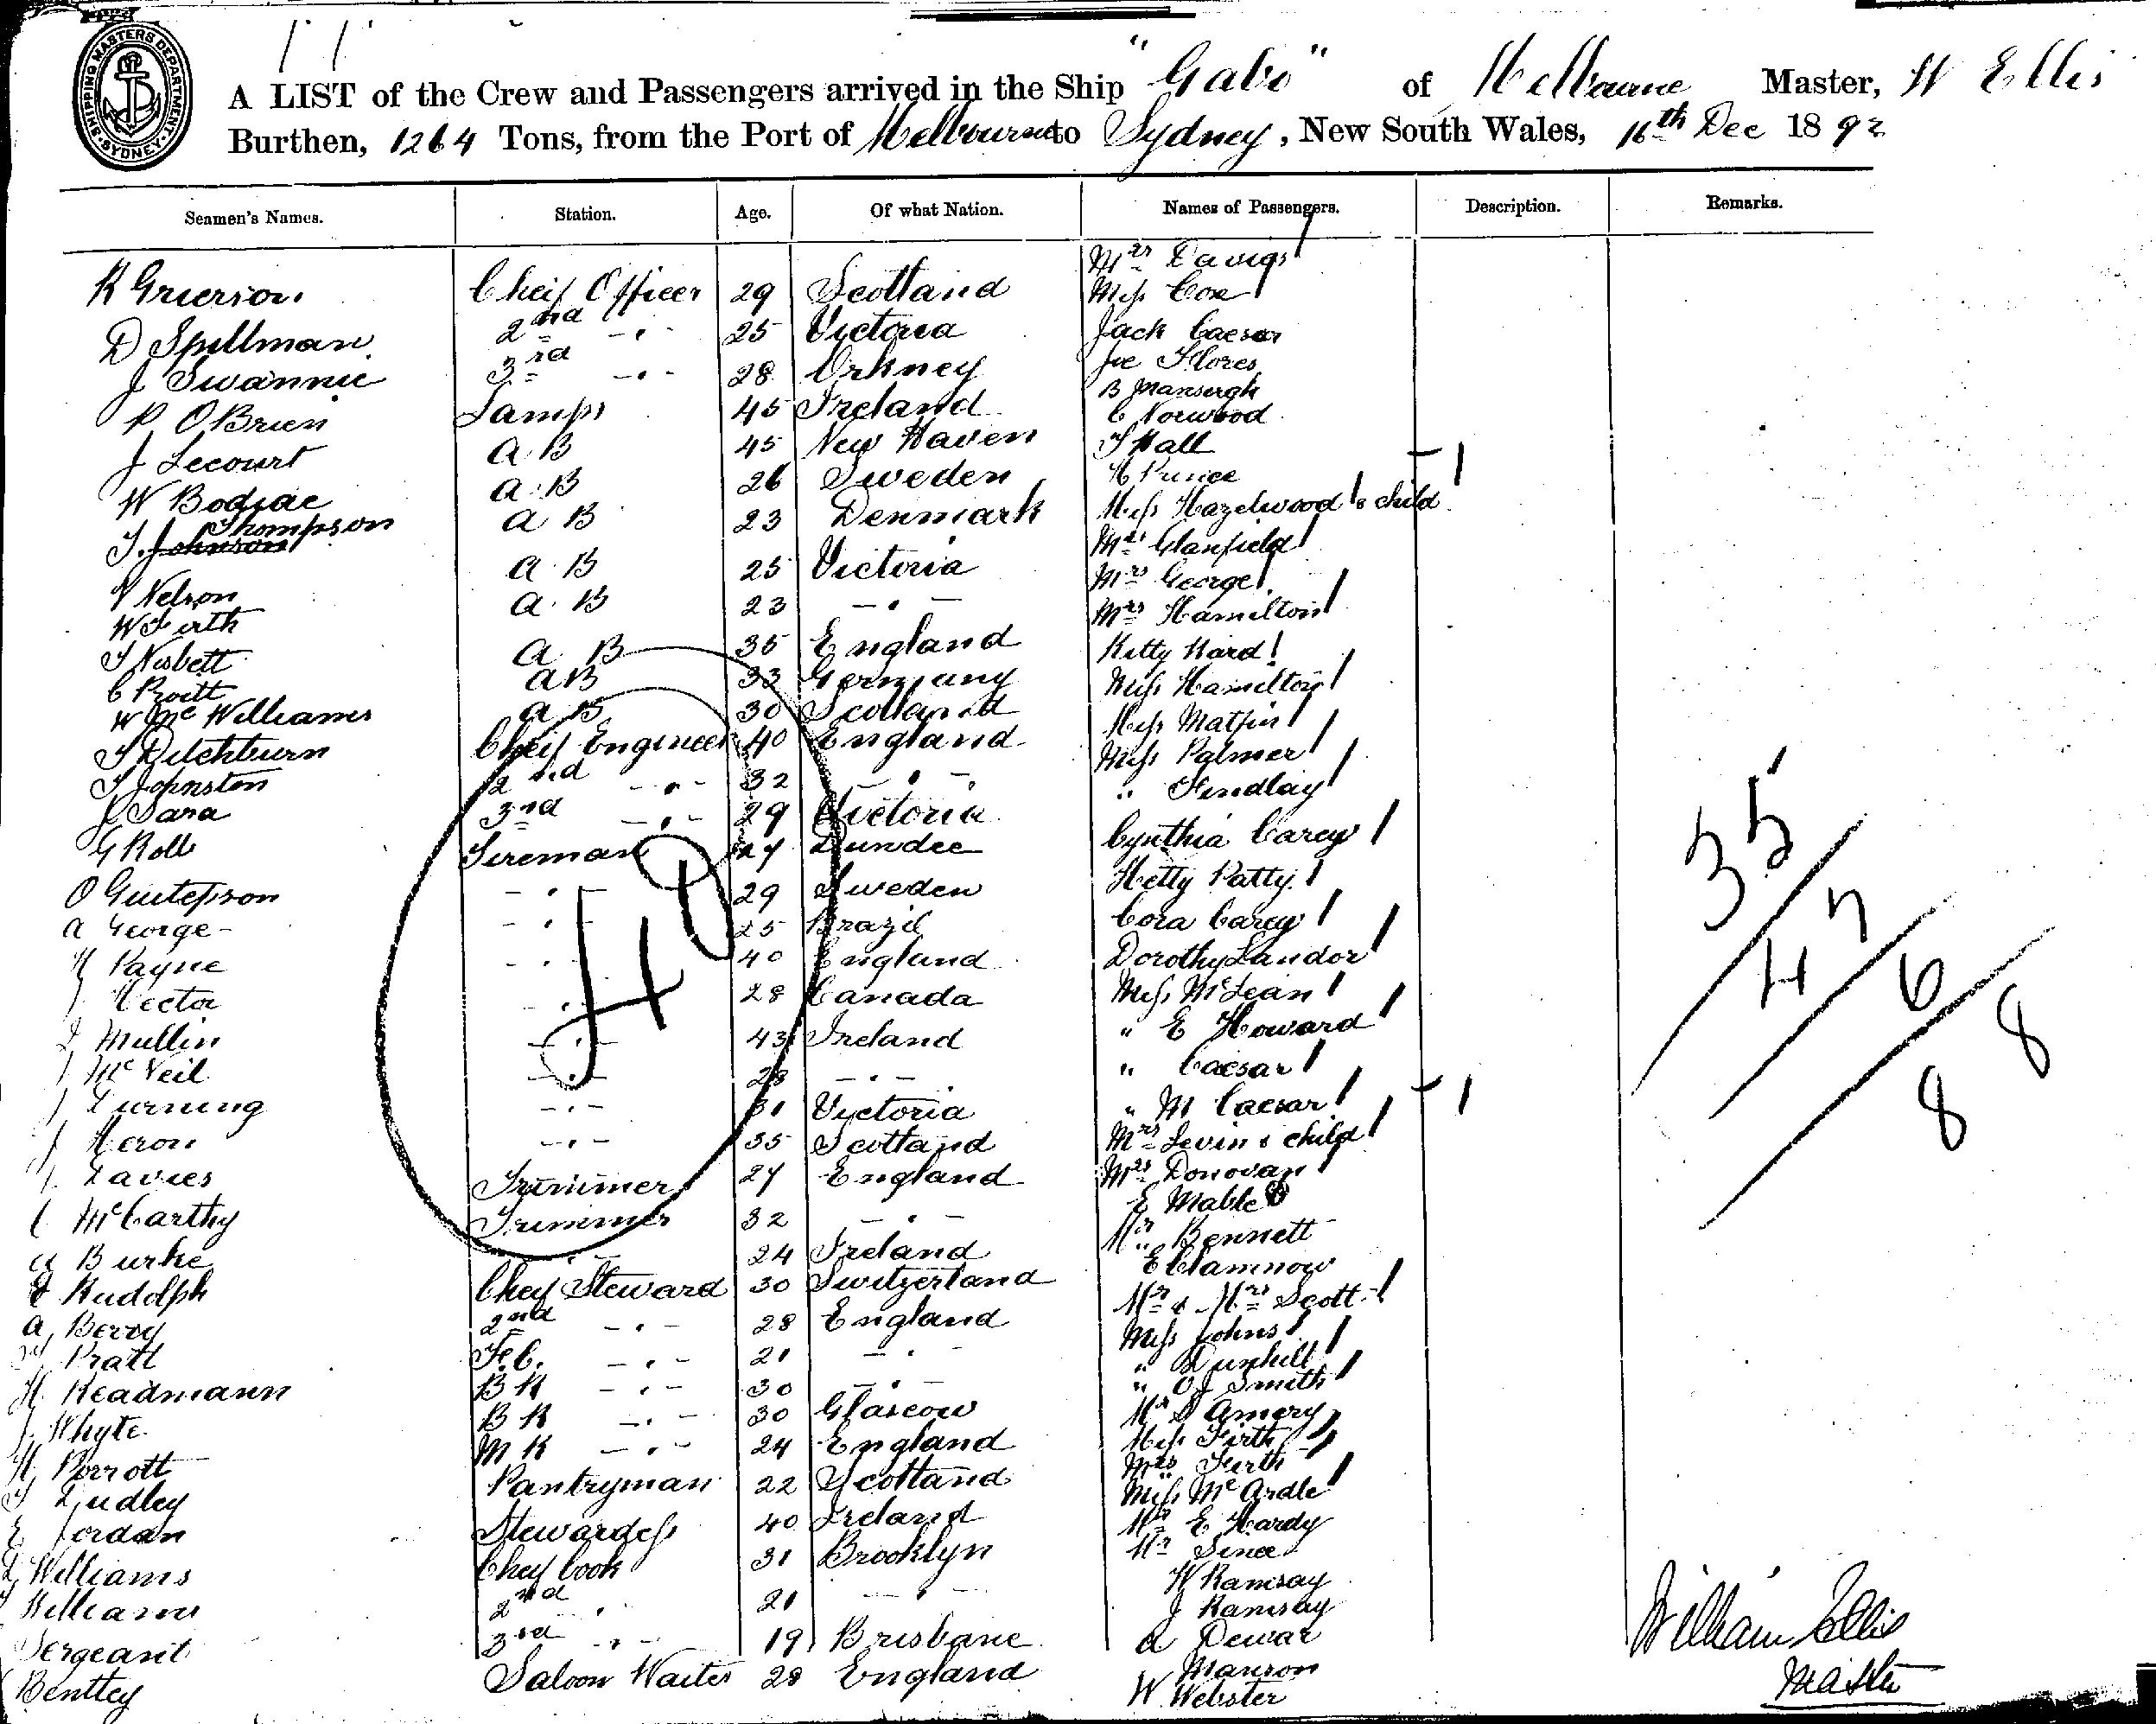 SHIPPING MASTERS DEPARTMENT SYDNEY
A LIST of the Crew and Passengers arrived in the Ship "Gabo" of Melbourne Master, W Ellis
Burthen, 1264 Tons, from the Port of Melbourne to Sydney, New South Wales, 16th Dec 1892
Seamen's Names. Station. Age. Of what Nation. Names of Passengers. Description. Remarks.
Mrs Davies
R Grierson Cheif Officer 29 Scotland Miss Cox
D Spillman 2nd -"- 25 Victoria Jack Caesar
J Swannie 3rd -"- 28 Orkney Joe Flores
B Mansergh
P O'Brien Lamps 45 Ireland C Norwood
J Lecourt A.B 45 New Haven T Hall
W Bodiac A.B 26 Sweden H Prince
T. Johnson Thompson A B 23 Denmark Miss Hazelwood & child
Mrs Glanfield
Nelson A.B 25 Victoria Mrs George
W Firth A.B 23 -"- Mrs Hamilton
T Nesbett A B 35 England Kitty Hard
C Roitt AB 33 Germany Miss Hamilton
W McWilliams AB 30 Scotland Miss Matfin
T Ditchburn Cheif Engineer 40 England Miss Palmer
T Johnston 2nd -"- 32 -"- " Findlay
J Sara 3rd -"- 29 Victoria
G Roll Fireman 27 Dundee Cynthia Carey
O Gustepson -"- 29 Sweden Hetty Patty
A George -"- 25 Brazil Cora Carey
H Payne -"- 40 England Dorothy Landor
J. Hector -"- 28 Canada Miss McLean
Mullin -"- 43 Ireland " E Howard
McNeil -"- 23 -"- " Caesar
Turning -"- 31 Victoria " M Caesar
J Heron -"- 35 Scotland Mrs Levin & child
Davies Trimmer 27 England Mrs Donovan
E Mable
McCarthy Trimmer 32 -"- Mr Bennett
Burke -"- 24 Ireland E Clamnow
Rudolph Cheif Steward 30 Switzerland Mr & Mrs Scott
A. Berry 2nd -"- 28 England Miss Johns
Pratt F.C. -"- 21 -"- " Dunhill
H. Readmann B K -"- 30 -"- " O J Smith
J. Whyte B K -"- 30 Glascow Mr D Amery
Miss Firth
H. Porrott M K -"- 24 England Mrs Firth
Dudley Pantryman 22 Scotland Miss McArdle
E Jordan Stewardess 40 Ireland Mr E Hardy
Williams Cheif Cook 31 Brooklyn Mr Since
W Ramsay
Williams 2nd " 21 -"- J Ramsay
Sergeant 3rd -"- 19 Brisbane A Dewar
Bentley Saloon Waiter 28 England Manson
W Webster
35
47
6
8 8
H
William Ellis
Master